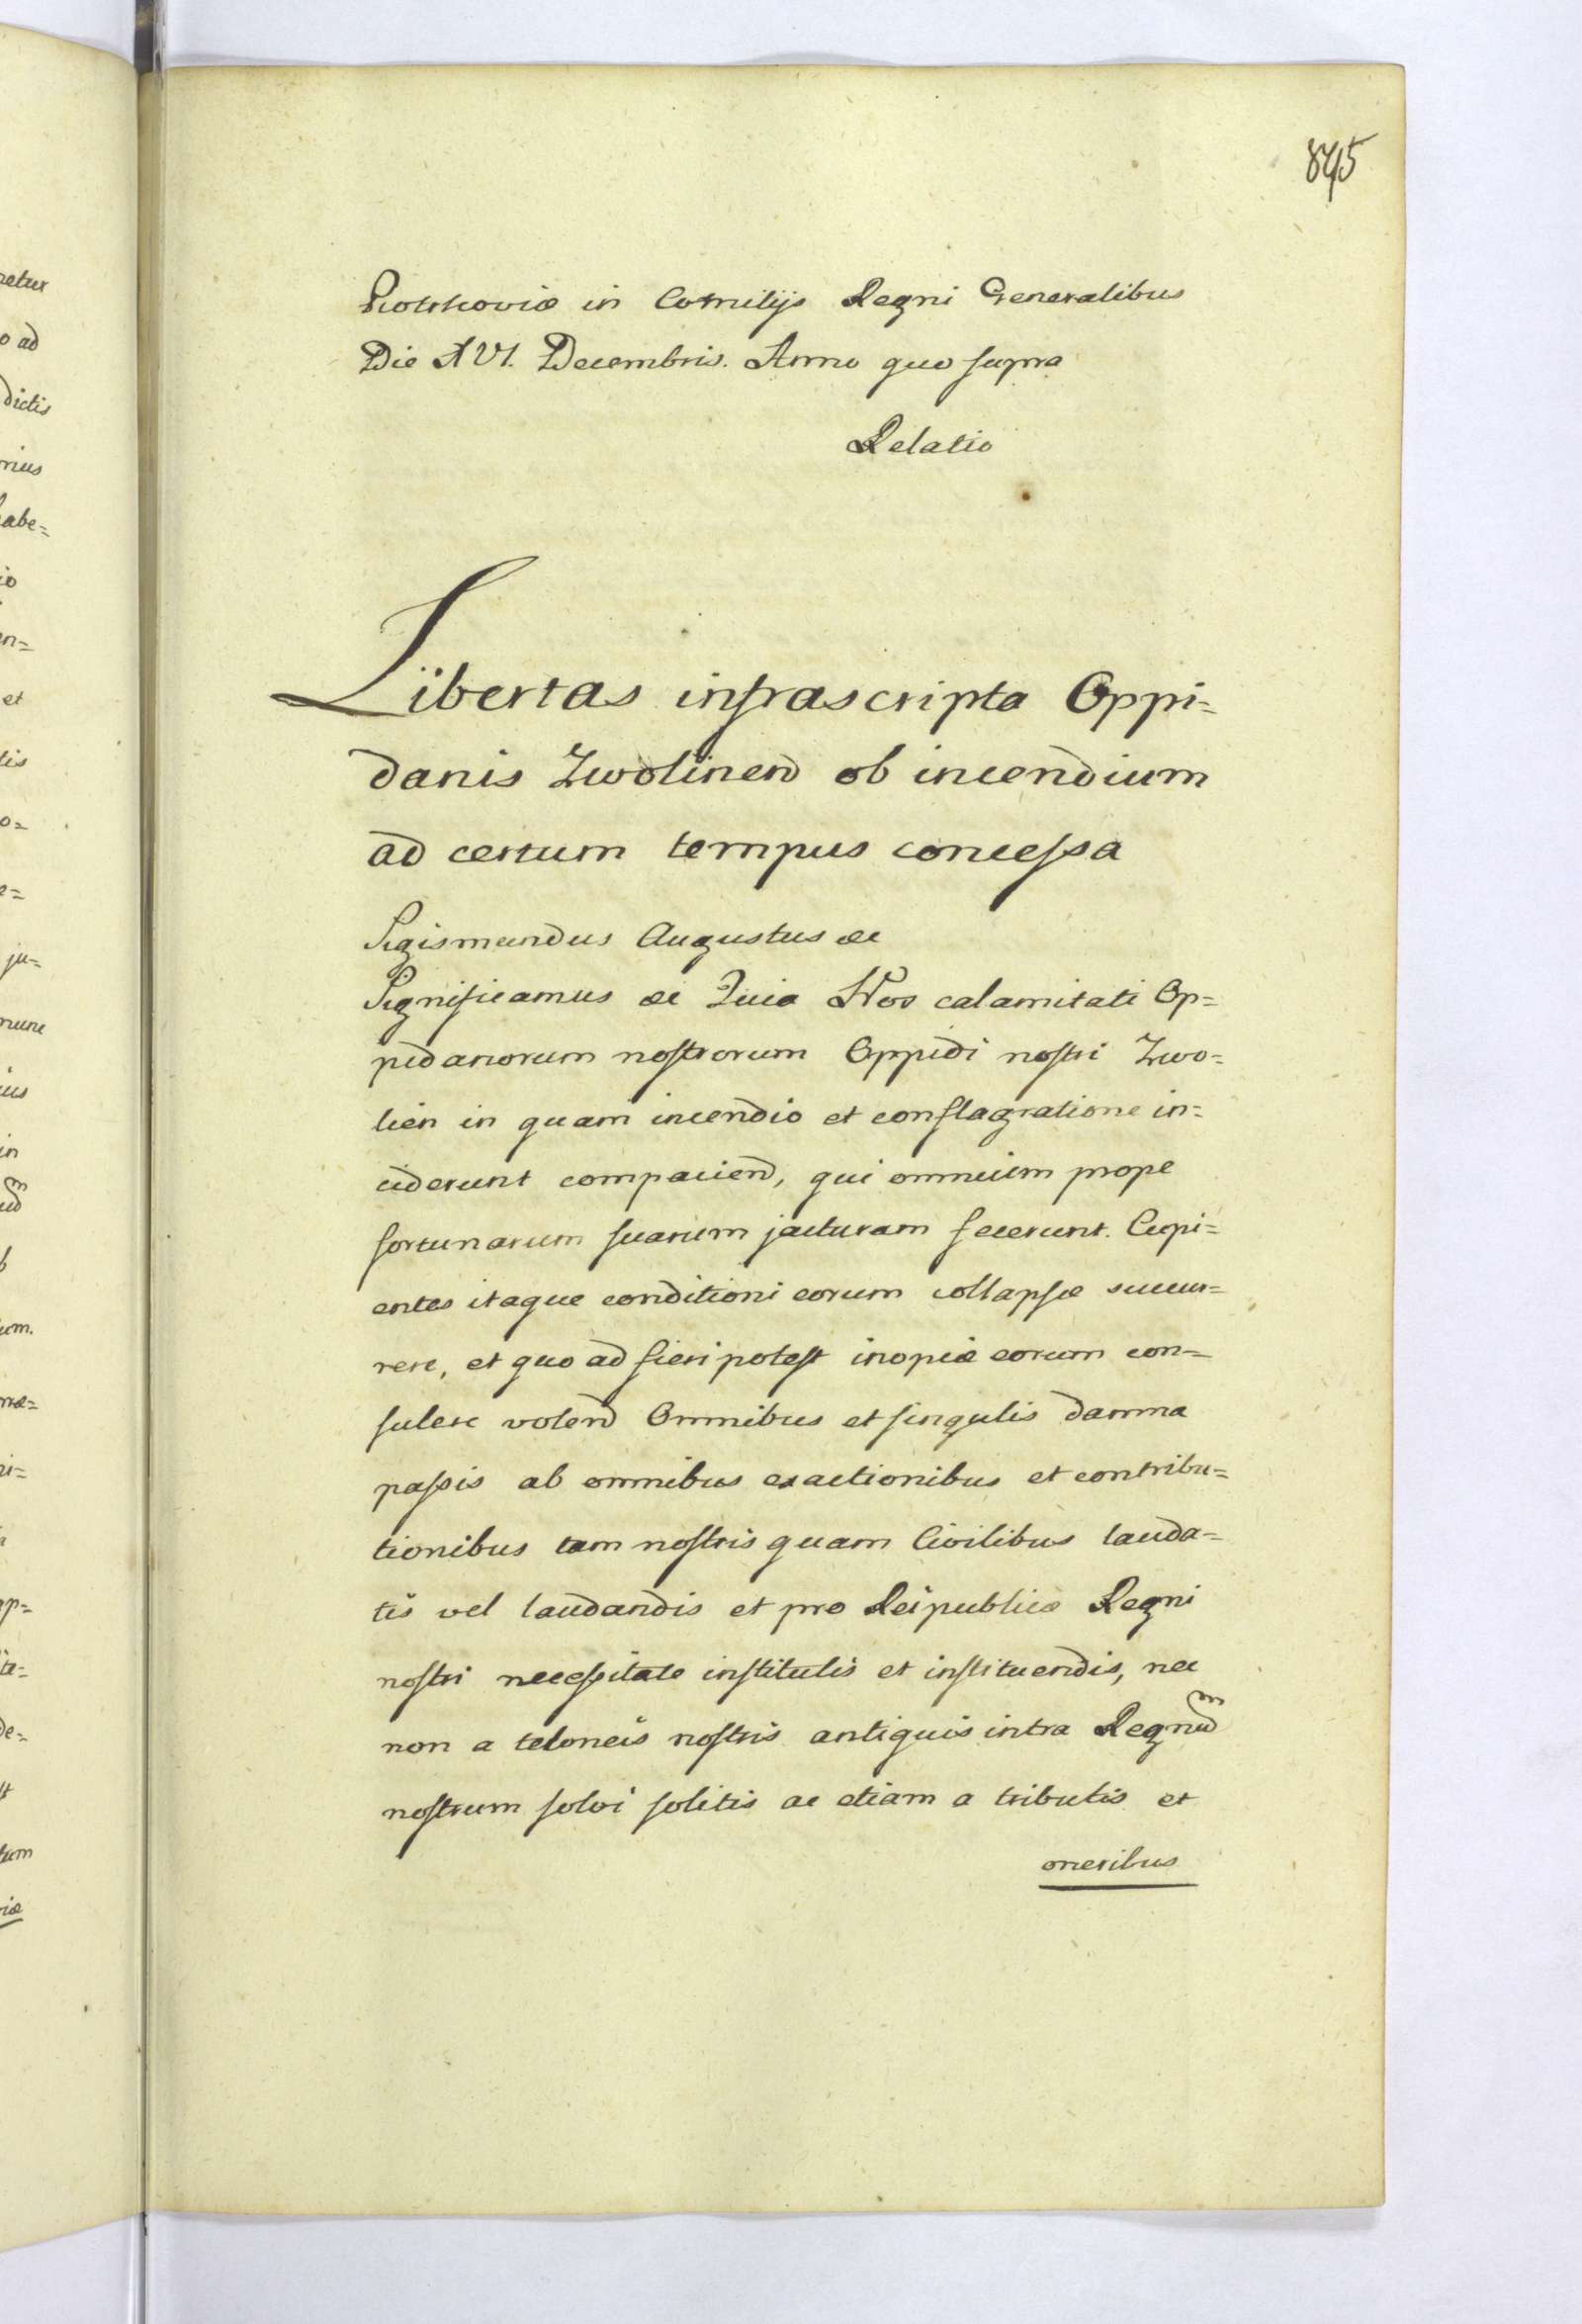 845
Piotrkoviæ in Comitijs Regni Generalibus
Die XVI. Decembris. Anno quo supra
Relatio
Libertas infrascripta Oppi=
danis Zwolinen̄ ob incendium
ad certum tempus concessa
Sigismundus Augustus &c
Significamus &c Quia Nos calamitati Op=
pidanorum nostrorum Oppidi nostri Zwo=
lien in quam incendio et conflagratione in=
ciderunt compacien̄, qui omnium prope
fortunarum suarum jacturam fecerunt. Cupi=
entes itaque conditioni eorum collapsæ succur=
rere, et quo ad fieri potest inopiæ eorum con=
sulere volen̄ Omnibus et singulis damna
passis ab omnibus exactionibus et contribu=
tionibus tam nostris quam Civilibus lauda=
tis vel laudandis et pro Reipublicæ Regni
nostri necessitate institutis et instituendis, nec
non a teloneis nostris antiquis intra Regnum
nostrum solvi solitis ac etiam a tributis et
oneribus
netur
o ad
dictis
rius
habe=
io
en=
et
tis
o=
e=
ju=
nunc
ius
in
um.
ræ=
ri=
ap=
ita=
de=
tum
riæ